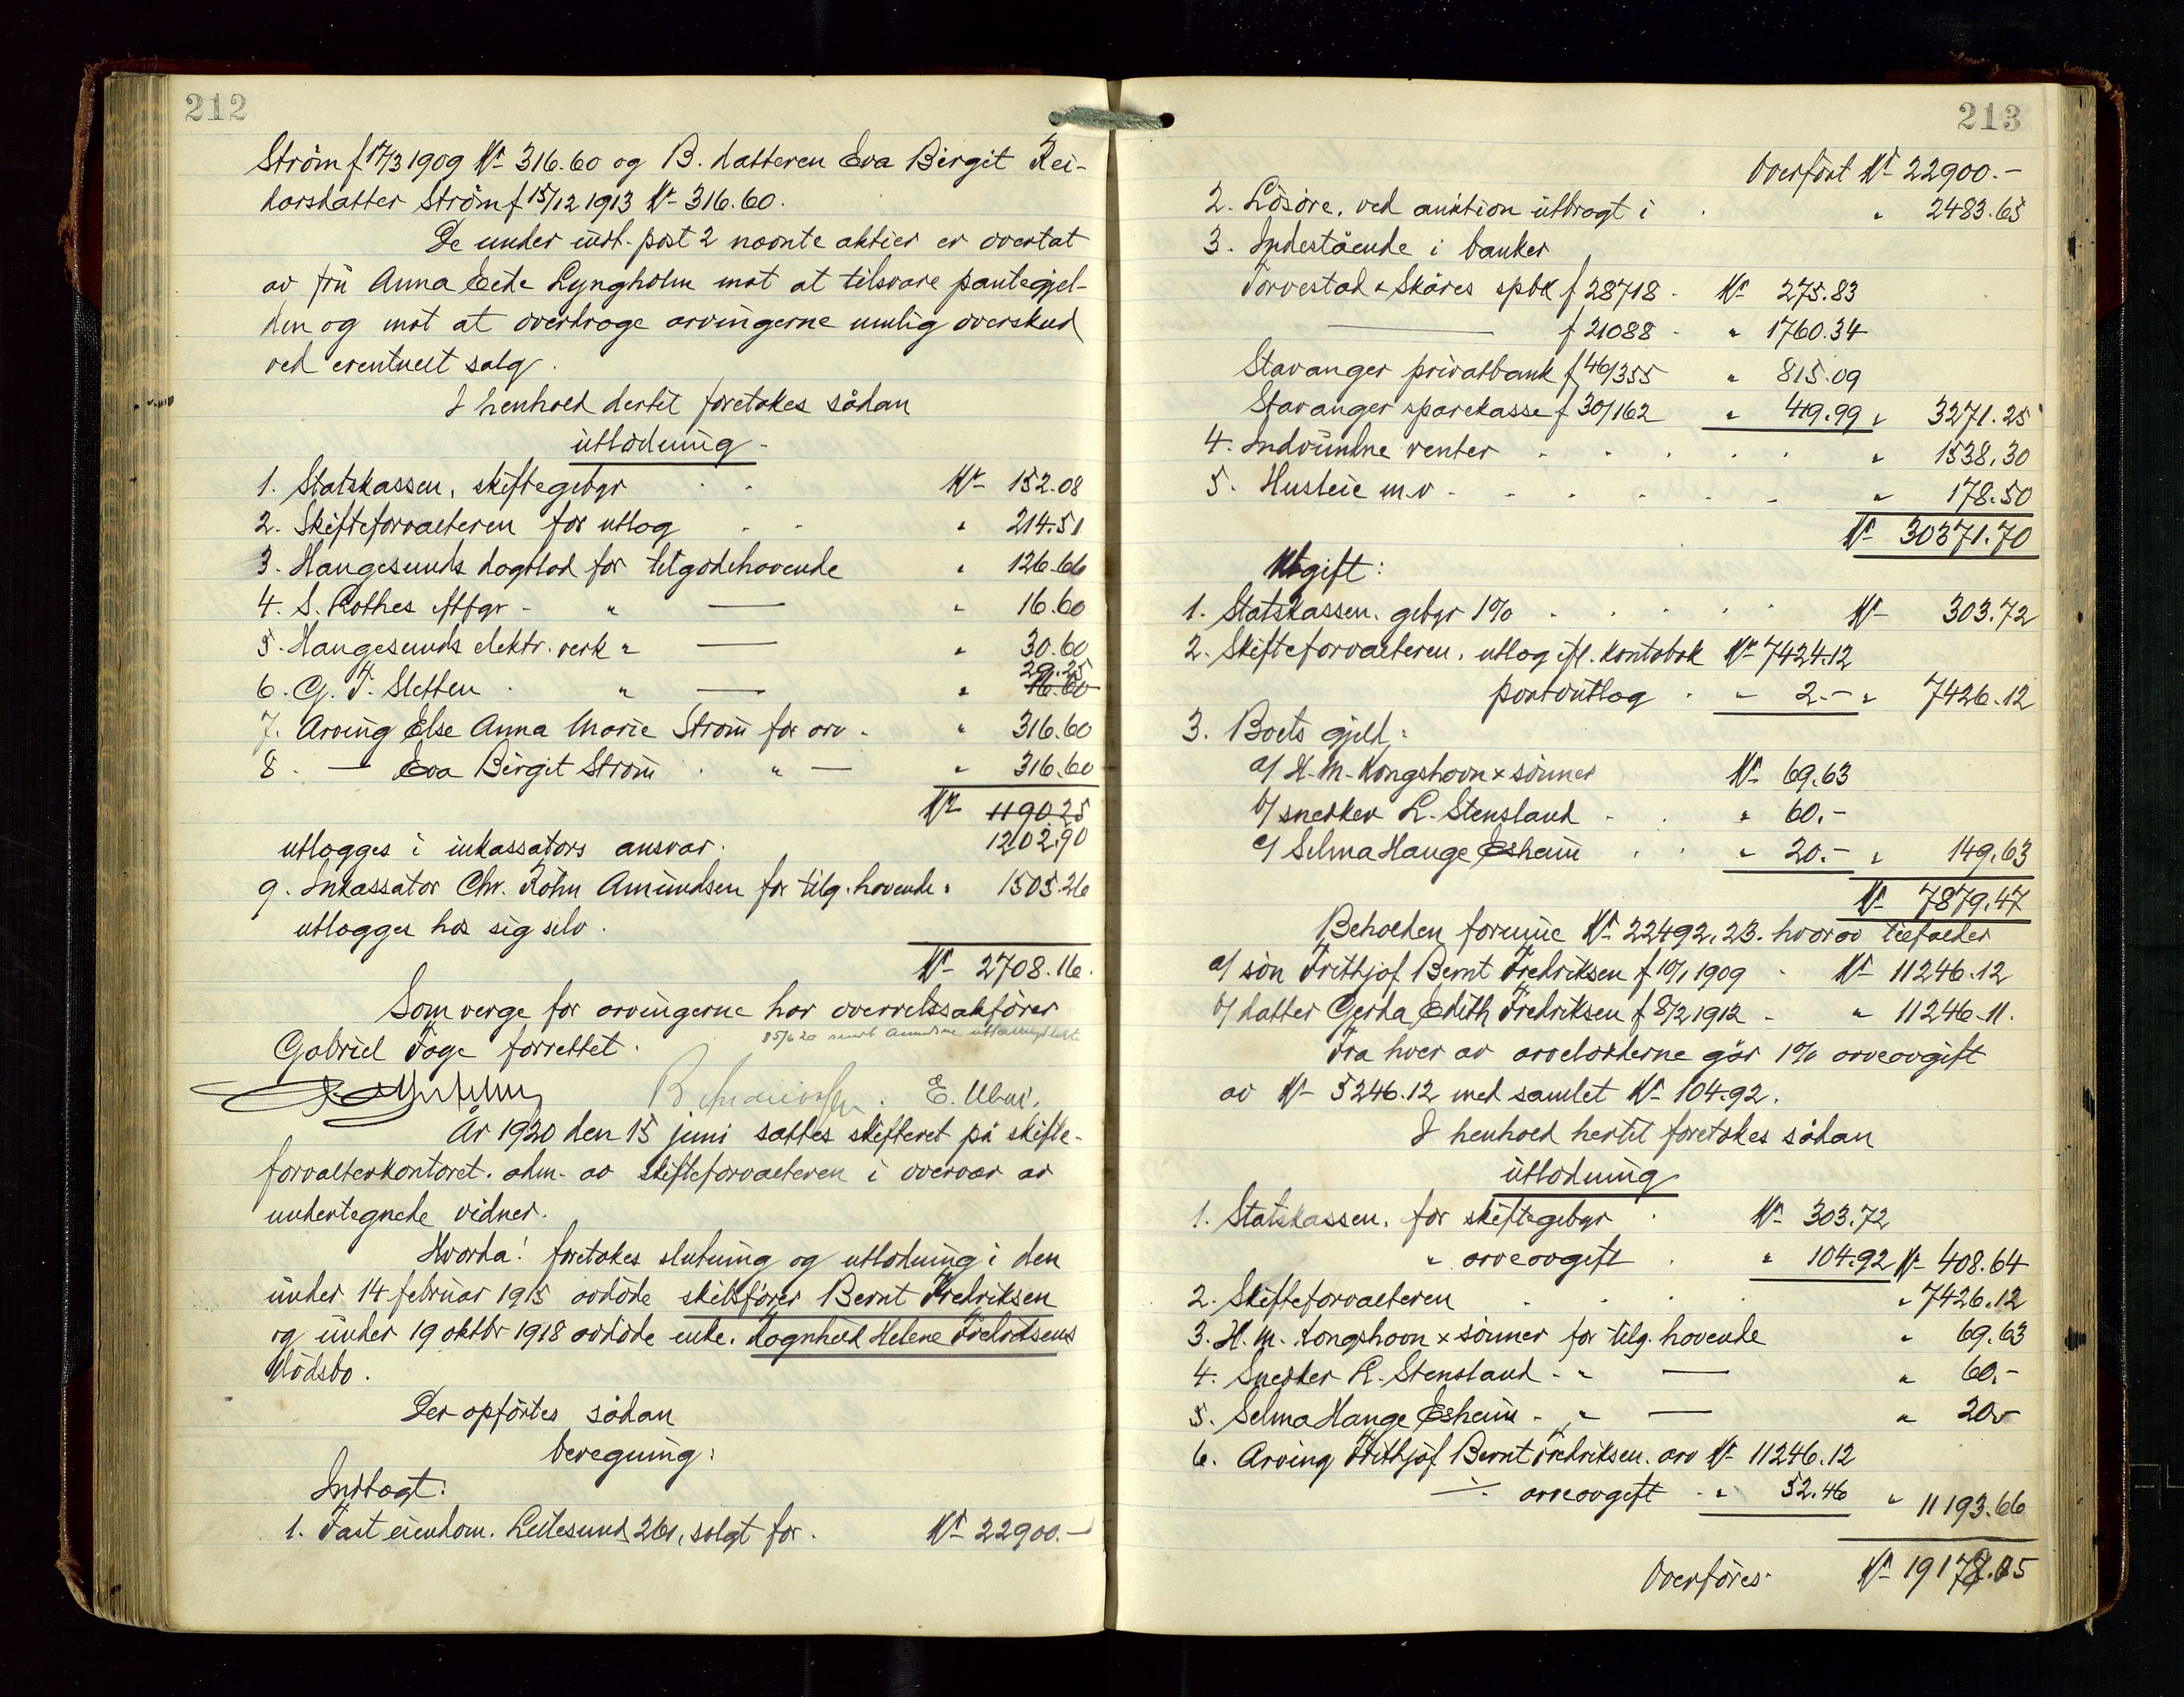 212
Ström f 17/3 1909 Kr 316.60 og B. datteren Eva Birgit Rei-
darsdatter Ström f 15/12 1913 Kr 316.60.
De under indt. post 2 nævnte aktier er overtat
av fru Anna Eide Lyngholm mot at tilsvare pantegjel-
den og mot at overdrage arvingerne mulig overskud
ved eventuelt salg.
I henhold dertil foretokes sådan
utlodning.
1. Statskassen, skiftegebyr Kr 152.08
2. Skifteforvalteren for utlæg " 214.51
3. Haugesunds dagblad for tilgodehavende " 126.66
4. S. Rothes eftfgr - " — " 16.60
5. Haugesunds elektr. verk " — " 30.60
29.25
6. G. T. Sletten . " — " 16.60
7. Arving Else Anna Marie Ström for arv - " 316.60
8. — Eva Birgit Ström . " — " 316.60
Kr 1190.25
1202.90
utlægges i inkassators ansvar.
9. Inkassator Chr. Röhn Amundsen for tilg. havende " 1505.26
utlægges hos sig selv.
Kr 2708.16.
Som verge for arvingerne har overretssakförer
Gabriel Tage forrettet.
E. Ubøe.
År 1920 den 15 juni sattes skifteret på skifte-
forvalterkontoret. adm. av skifteforvalteren i overvær av
undertegnede vidner.
Hvorda! foretokes slutning og utlodning i den
under 14 februar 1915 avdöde skibsförer Bernt Fredriksen
og under 19 oktbr 1918 avdöde enke. Ragnhild Helene Fredriksens
dödsbo.
Der opförtes sådan
beregning:
Indtægt:
1. Fast eiendom. Lillesund 261, solgt for. Kr 22900.-
213
Overfört Kr 22900.-
2. Lösöre, ved auktion utbragt i . " 2483.65
3. Indestående i banker
Torvestad & Skåres spbk f 28718 . Kr 275.83
— f 21088 - " 1760.34
Stavanger privatbank f 46/355 " 815.09
Stavanger sparekasse f 30/162 " 419.99 " 3271.25
4. Indvundne renter . . . . . " 1538.30
5. Husleie m.v. . . . . " 178.50
Kr 30371.70
Utgift:
1. Statskassen. gebyr 1% . . . . Kr 303.72
2. Skifteforvalteren. utlæg ifl. kontobok Kr 7424.12
portoutlæg . " 2.- " 7426.12
3. Boets gjeld:
a/ H. M. Kongshavn & sönner Kr 69.63
b/ snekker L. Stensland . . " 60.-
c/ Selma Hauge Esheim . . " 20.- " 149.63
Kr 7879.47
Beholden formue Kr 22492.23. hvorav tilfalder
a/ sön Frithjof Bernt Fredriksen f 10/1 1909 . Kr 11246.12
b/ datter Gerda Edith Fredriksen f 8/2 1912 - " 11246.11.
Fra hver av arvelodderne går 1% arveavgift
av Kr 5246.12 med samlet Kr 104.92.
I henhold hertil foretokes sådan
utlodning
1. Statskassen. for skiftegebyr . Kr 303.72
" arveavgift . " 104.92 Kr 408.64
2. Skifteforvalteren . . . . " 7426.12
3. H. M. Kongshavn & sönner for tilg. havende " 69.63
4. Snekker L. Stensland - " — " 60.-
5. Selma Hauge Esheim - " — " 20.-
6. Arving Frithjof Bernt Fredriksen. arv Kr 11246.12
÷ arveavgift . " 52.46 " 11193.66
Overföres. Kr 19178.05